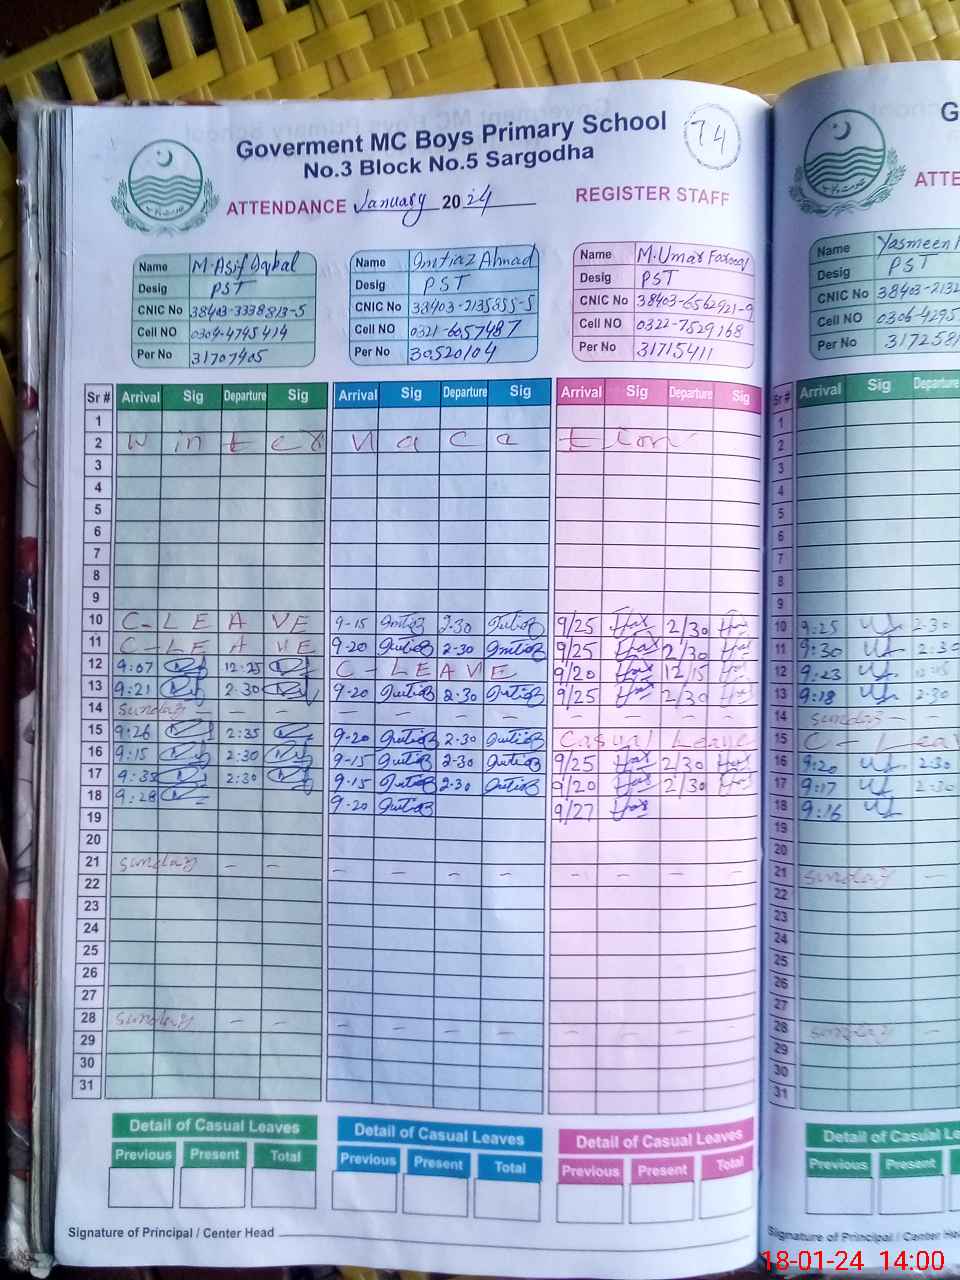 Goverment MC Boys Primary School
No.3 Block No.5 Sargodha
74
ATTENDANCE January 2024 REGISTER STAFF
Name M. Asif Iqbal
Desig PST
CNIC No 38403-3338813-5
Cell NO 0304-4745414
Per No 31707405
Name Imtiaz Ahmad
Desig PST
CNIC No 38403-2135855-5
Cell NO 0321-6057487
Per No 30520104
Name M. Umar Farooq
Desig PST
CNIC No 38403-6562921-9
Cell NO 0322-7529168
Per No 31715411
Sr # Arrival Sig Departure Sig Arrival Sig Departure Sig Arrival Sig Departure Sig
1
2 Winter Vacation
3
4
5
6
7
8
9
10 C-LEAVE 9-15 2-30 9/25 2/30
11 C-LEAVE 9-20 2-30 9/25 2/30
12 9:07 12:25 C-LEAVE 9/20 12/15
13 9:21 2:30 9-20 2-30 9/25 2/30
14 sunday — — — — — — — — — —
15 9:26 2:35 9-20 2-30 Casual Leave
16 9:15 2:30 9-15 2-30 9/25 2/30
17 9:35 2:30 9-15 2-30 9/20 2/30
18 9:28 9-20 9/27
19
20
21 sunday — — — — — — — — — —
22
23
24
25
26
27
28 sunday — — — — — — — — — —
29
30
31
Detail of Casual Leaves Detail of Casual Leaves Detail of Casual Leaves
Previous Present Total Previous Present Total Previous Present Total
Signature of Principal / Center Head
G
ATTE
Name Yasmeen
Desig PST
CNIC No 38403-2132
Cell NO 0306-4295
Per No 3172581
Sr # Arrival Sig Departure
1
2
3
4
5
6
7
8
9
10 9:25 2-30
11 9:30 2:30
12 9:23
13 9:18 2-30
14 sunday —
15 C- Leav
16 9:20 2-30
17 9:17 2-30
18 9:16
19
20
21 sunday —
22
23
24
25
26
27
28 sunday —
29
30
31
Detail of Casual Le
Previous Present
Signature of Principal / Center He
18-01-24 14:00